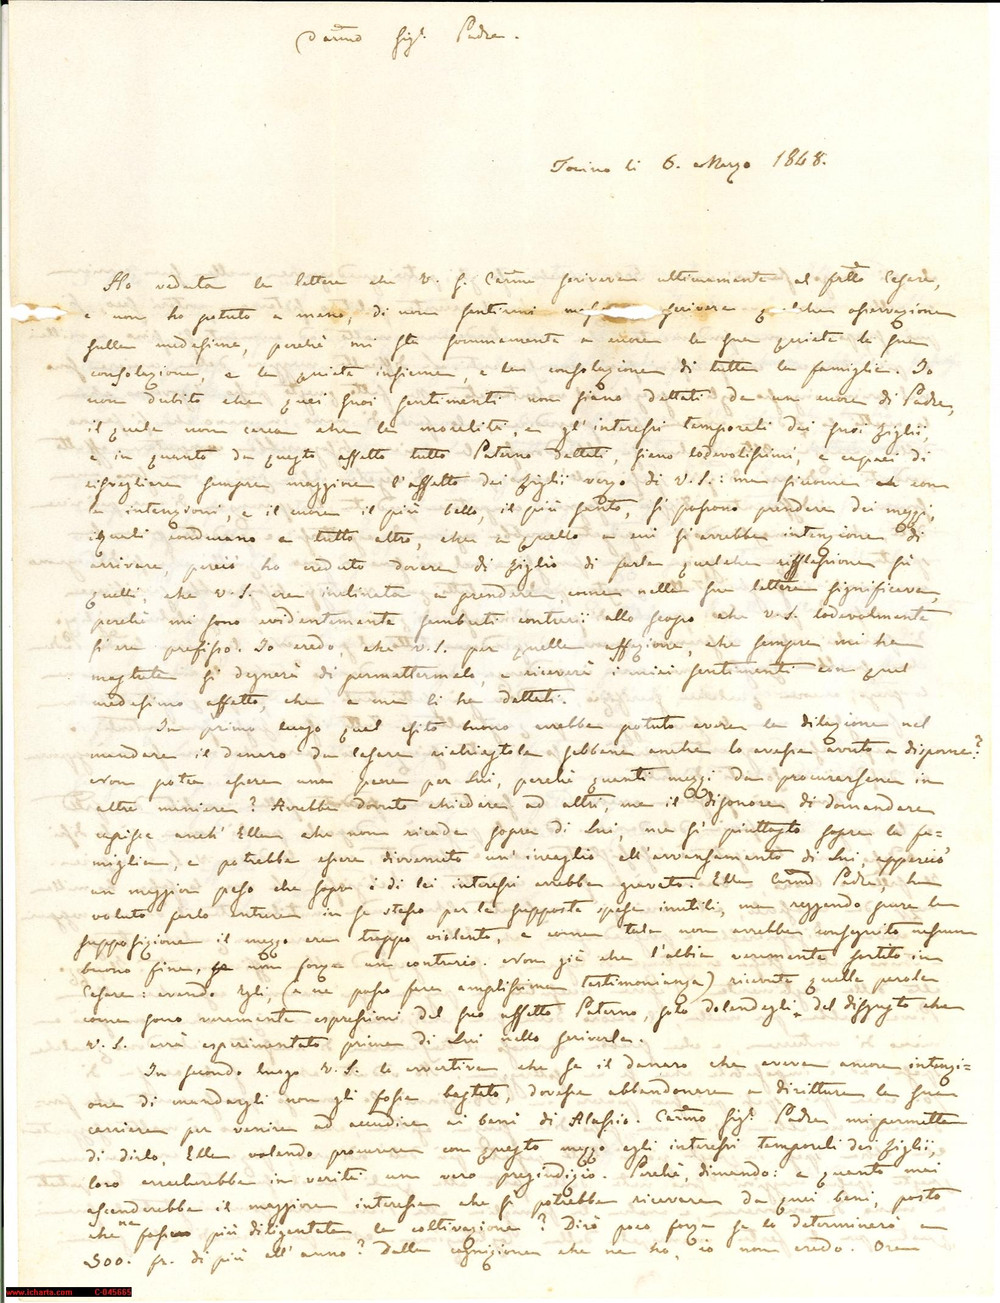 Carmo Sigr. Padre.
Torino li 6. Marzo 1848.
Ho veduta la lettera che V. S. Carma scriveva ultimamente al fratllo Cesare,
e non ho potuto a meno, di non sentirmi scrivere qualche osservazione
sulla medesima, perchè mi sta sommamente a cuore la sua quiete la sua
consolazione, e la quiete insieme, e la consolazione di tutta la famiglia. Io
non dubito che quei suoi sentimenti non siano dettati da un cuore di Padre,
il quale non cerca che la moralità, e gl'interessi temporali dei suoi figlii,
e in quanto da questo affetto tutto Paterno dettati, siano lodevolissimi, e capaci di
risvegliare sempre maggiore l'affetto dei figlii verso di V. S.: ma siccome con
le intenzioni, e il cuore il più bello, il più santo, si possono prendere dei mezzi,
i quali conducano a tutto altro, che a quello a cui si avrebbe intenzione di
arrivare, perciò ho creduto dovere di figlio di farle qualche riflessione su
quelli, che V. S. era inclinata a prendere, come nella sua lettera significava,
perchè mi sono evidentemente sembrati contrarii allo scopo che V. S. lodevolmente
si era prefisso. Io credo, che V. S. per quella affezione, che sempre mi ha
mostrata si degnerà di permettermelo, e riceverà i miei sentimenti con quel
medesimo affetto, che a me li ha dettati.
In primo luogo qual esito buono avrebbe potuto avere la dilazione nel
mandare il danaro da Cesare sebbene anche lo avesse avuto a disporne?
Non potea essere una pena per Lui, perchè quanti mezzi da procurarsene in
altre maniere? Avrebbe dovuto chiedere ad altri, ma il disonore di domandare
capisce anch'Ella che non ricade sopra di Lui, ma sì piuttosto sopra la fa=
miglia, e potrebbe essere divenuto un'inceglio all'avvanzamento di Lui, epperciò
un maggior peso che sopra i di lei interessi avrebbe gravato. Ella Carmo Padre, ha
voluto farlo entrare in se stesso per le supposte spese inutili, ma reggendo pure la
supposizione il mezzo era troppo violento, e come tale non avrebbe conseguito nessun
buon fine, se non forse un contrario. Non già che l'abbia veramente sortito in
Cesare: avendo Egli, (e ne posso fare amplissima testimonianza) ricevute quelle parole
come sono veramente espressioni del suo affetto Paterno, solo dolendogli del disgusto che
V. S. avrà esperimentato prima di Lui nello scriverle.
In secondo luogo V. S. lo avvertiva che se il danaro che aveva ancora intenzi=
one di mandargli non gli fosse bastato, dovesse abbandonare a dirittura la sua
carriera per venire ad accudire ai beni di Alassio. Carmo Sigr. Padre mi permetta
di dirlo, Ella volendo procurare con questo mezzo agli interessi temporali dei figlii,
loro arrecherebbe in verità un vero pregiudizio. Perchè, dimando: a quanto mai
ascenderebbe il maggiore interesse che si potrebbe ricavare da quei beni, posto
che ne fosse più diligentata la coltivazione? Dirò poco forse se lo determinerò a
500. fr. di più all'anno? Dalla cognizione che ne ho, io non credo. Ora
www.icharta.com C-045665